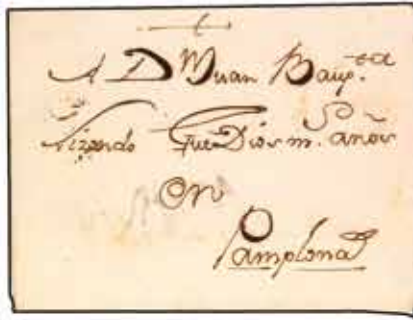 A D.n Juan Bap.ta
Que Dios m.s años
en
Pamplona